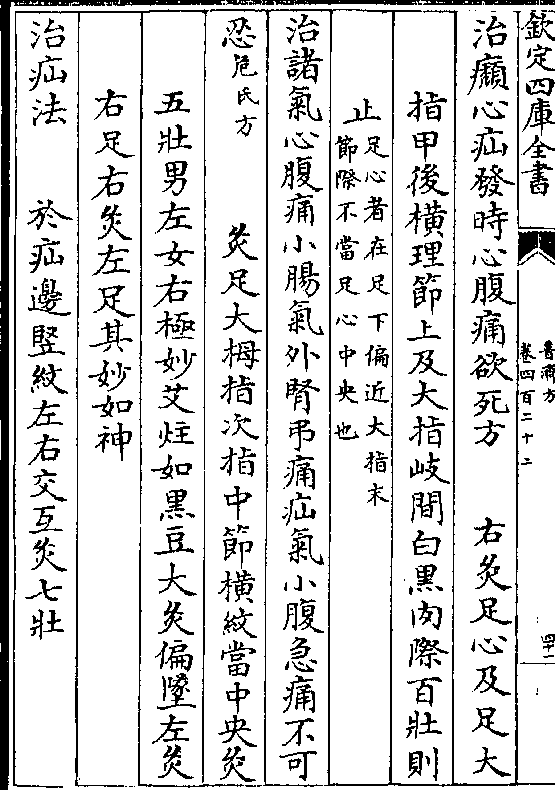 欽定四庫全書
普濟方
卷四百二十二
四十一
治癩心疝發時心腹痛欲死方　右灸足心及足大
指甲後橫理節上及大指岐間白黑肉際百壯則
止足心者在足下偏近大指末
節際不當足心中央也
治諸氣心腹痛小腸氣外腎弔痛疝氣小腹急痛不可
忍危氏方　灸足大栂指次指中節橫紋當中央灸
五壯男左女右極妙艾炷如黑豆大灸偏墜左灸
右足右灸左足其妙如神
治疝法　於疝邊竪紋左右交互灸七壯